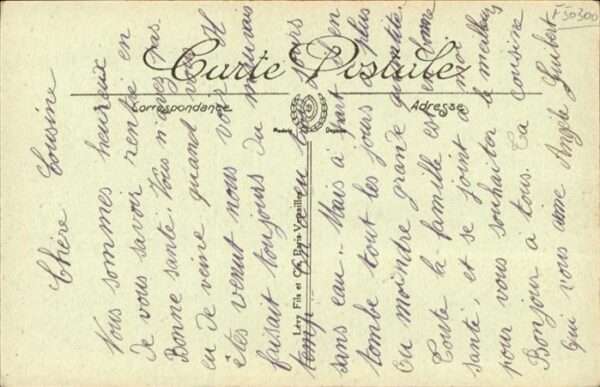 F 50300
Carte Postale
Correspondance
Adresse
Modèle Déposé
Lévy Fils et Cie, Paris-Versailles
Chère Cousine
Nous sommes heureux
de vous savoir rentré en
Bonne santé. Vous n'avez pas
eu de veine quand vous
êtes venut nous voir. Il
faisait toujours du mauvais
temp. on a eu tout jours
sans eau.. Mais à part en
tombe tout les jours a plus
Ou moindre grande quantite.
Toute la famille est en bonne
santé, et se joint à moi
pour vous souhaiter le meilleur
Bonjour à tous. Ta cousine
qui vous aime Angèle Guibert